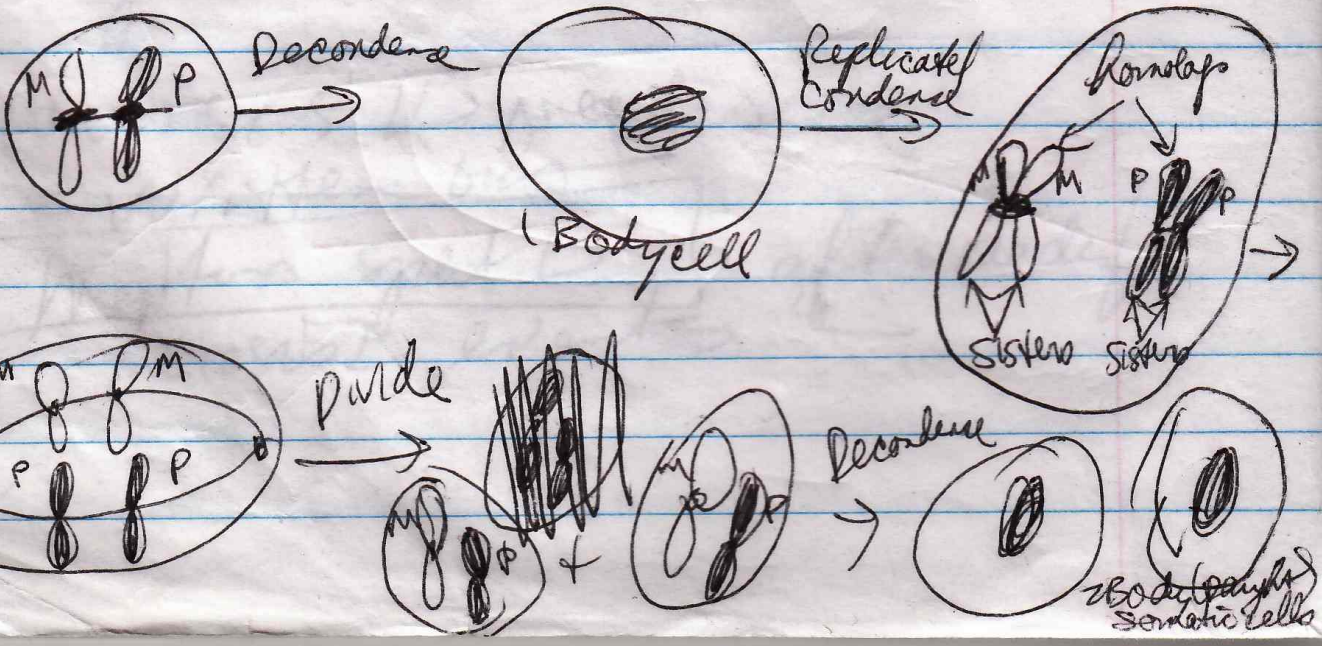 M P
Decondense
(Body cell
Replicate/
Condense
homologs
M M P P
Sisters Sisters
M M
P P
Divide
M P
+
M P
Decondense
2 Body (daughter)
Somatic cells